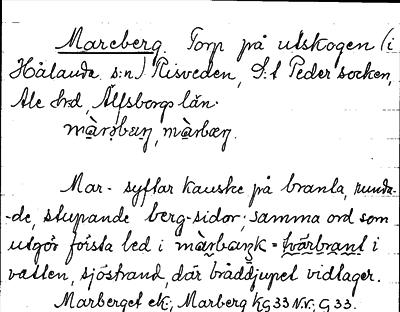 Mareberg. Torp på utskogen (i
Hålanda s:n) Risveden, S:t Peder socken,
Ale hrd, Älfsborgs län.
màrsbærj, màrbærj.
Mar- syftar kanske på branta, runda-
-de, stupande berg-sidor; samma ord som
utgör första led i màrbazk = tvärbrant i
vatten, sjöstrand, där bråddjupet vidtager.
Marberget etc; Marberg KG33 N.V.; G 33.